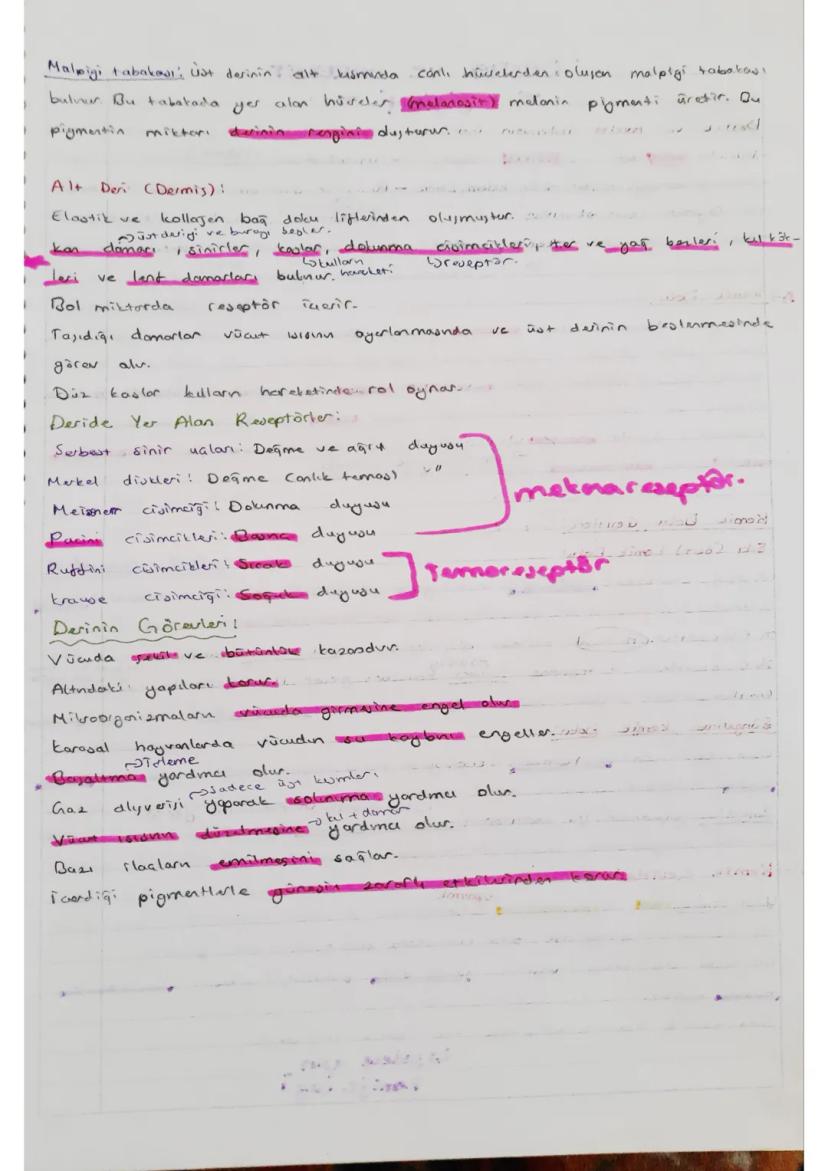 Malpigi tabakası: Üst derinin alt kısmında canlı hücrelerden oluşan malpigi tabakası
bulunur. Bu tabakada yer alan hücreler (melanosit) melanin pigmenti üretir. Bu
pigmentin miktarı derinin rengini oluşturur.
Alt Deri (Dermis):
Elastik ve kollajen bağ doku liflerinden oluşmuştur.
→üst deriyi ve burayı besler.
kan damarı, sinirler, kaslar, dokunma cisimcikleri, ter ve yağ bezleri, kıl kök-
↳kılların hareketi ↳reseptör.
leri ve lenf damarları bulunur.
Bol miktarda reseptör içerir.
Taşıdığı damarlar vücut ısısının ayarlanmasında ve üst derinin beslenmesinde
görev alır.
Düz kaslar kılların hareketinde rol oynar.
Deride Yer Alan Reseptörler:
Serbest sinir uçları: Değme ve ağrı duyusu
Merkel diskleri: Değme (anlık temas) "
Meissner cisimciği: Dokunma duyusu
Pacini cisimcikleri: Basınç duyusu
meknareseptör.
Ruffini cisimcikleri: Sıcak duyusu
Krause cisimciği: Soğuk duyusu
Termoreseptör
Derinin Görevleri:
Vücuda şekil ve bütünlük kazandırır.
Altındaki yapıları korur.
Mikroorganizmaların vücuda girmesine engel olur
Karasal hayvanlarda vücudun su kaybını engeller.
→İşleme
Boşaltıma yardımcı olur.
→Sadece üst kısımları
Gaz alışverişi yaparak solunuma yardımcı olur.
→kıl + damar
Vücut ısısının düzenlmesine yardımcı olur.
Bazı ilaçların emilmesini sağlar.
İçerdiği pigmentlerle güneşin zararlı etkilerinden korur